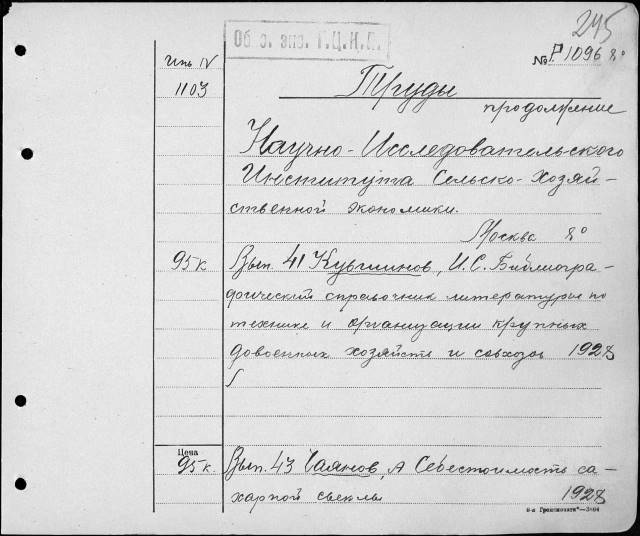 245
Об. о. экз. Г.Ц.К.П.
№ Р1096 8°
Инь IV
1103
Труды
продолжение
Научно-Исследовательского
Института Сельско-Хозяй-
ственной экономики.
Москва 8°
95 к
Вып. 41 Кувшинов, И.С. Библиогра-
фический справочник литературы по
технике и организации крупных
довоенных хозяйств и совхозов 1928
Цена
95 к.
Вып. 43 Чаянов, А Себестоимость са-
харной свеклы 1928